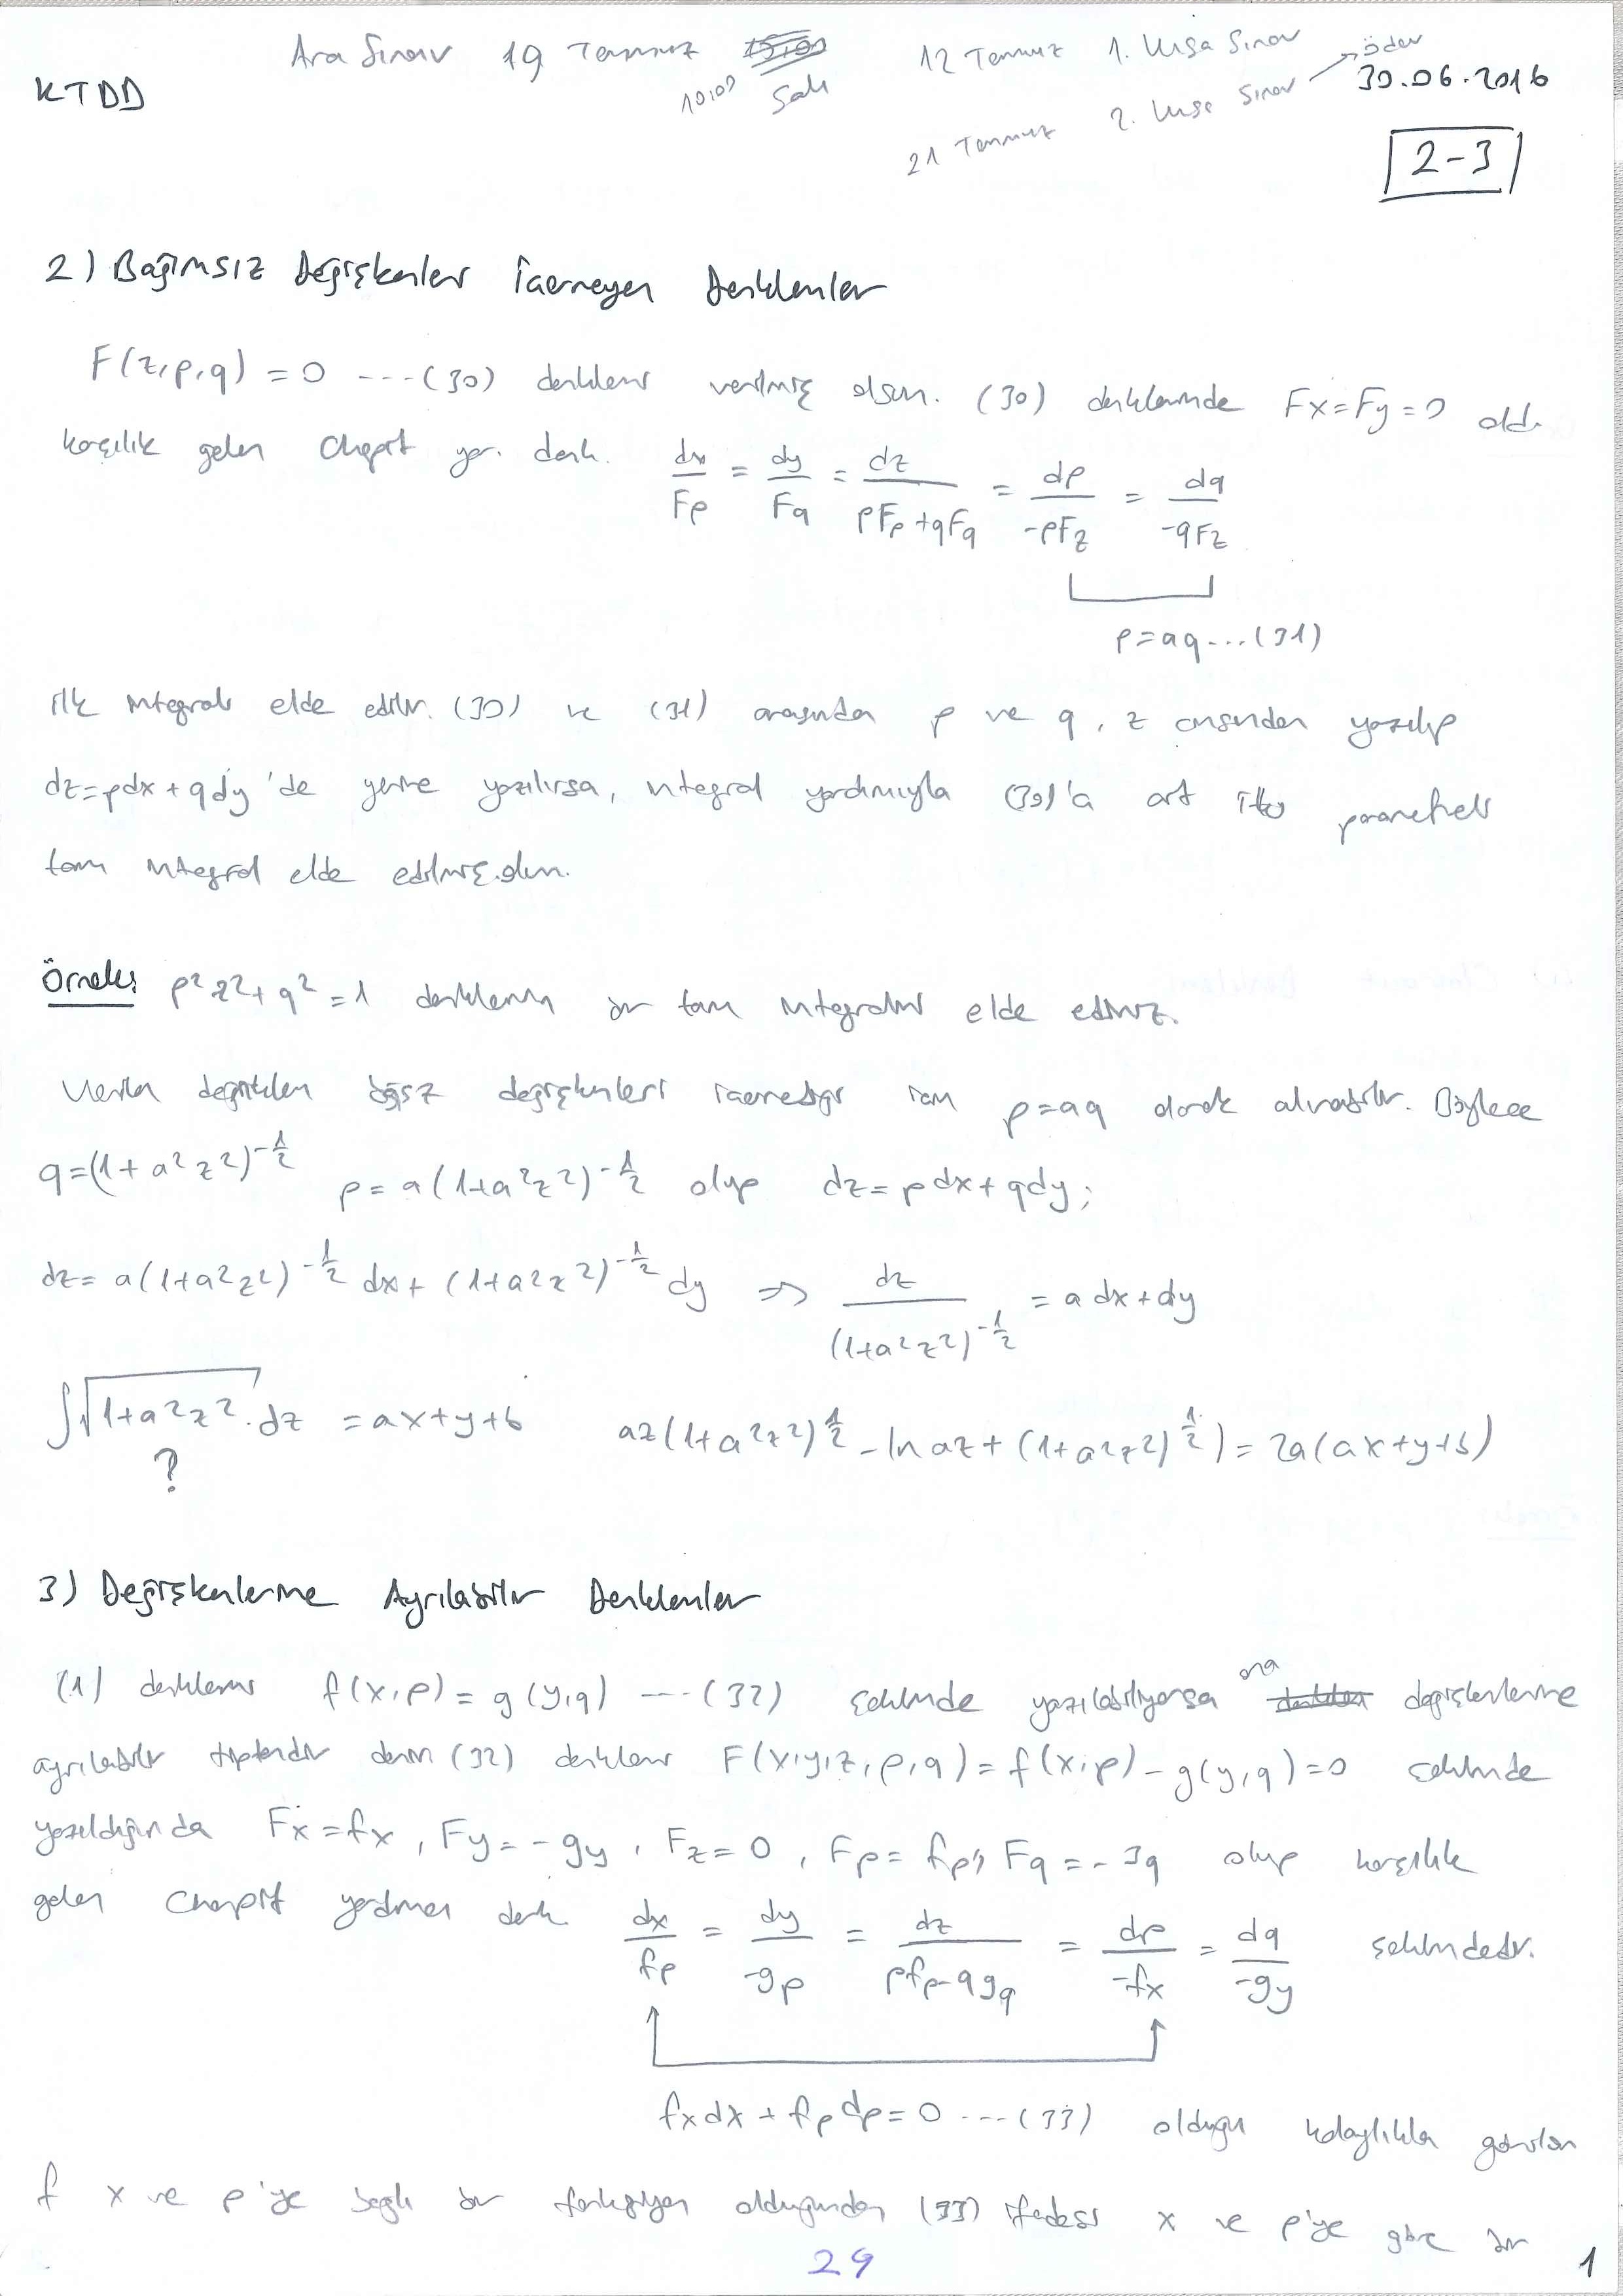 Ara Sınav 19 Temmuz 12 Temmuz 1. Kısa Sınav
10:00 Salı 21 Temmuz 2. Kısa Sınav → ödev
KTDD 30.06.2016
2-3
2) Bağımsız Değişkenler İçermeyen Denklemler
F(z,p,q) = 0 ---(30) denklemi verilmiş olsun. (30) denkleminde Fx=Fy=0 old.
karşılık gelen Charpit yar. denk. dx/Fp = dy/Fq = dz/(pFp+qFq) = dp/-pFz = dq/-qFz
p=aq...(31)
ilk integrali elde edilir. (30) ve (31) arasında p ve q, z cinsinden yazılıp
dz=pdx+qdy 'de yerine yazılırsa, integral yardımıyla (30)'a ait iki parametreli
tam integral elde edilmiş olur.
Örnek: p²z²+q²=1 denkleminin bir tam integralini elde ediniz.
Verilen değişken bğsz değişkenleri içermediği için p=aq olarak alınabilir. Böylece
q=(1+a²z²)^-1/2 p=a(1+a²z²)^-1/2 olup dz=pdx+qdy;
dz=a(1+a²z²)^-1/2 dx+(1+a²z²)^-1/2 dy ⇒ dz/(1+a²z²)^-1/2 = a dx+dy
∫√(1+a²z²).dz = ax+y+b az(1+a²z²)^1/2 - ln az+(1+a²z²)^1/2) = 2a(ax+y+b)
?
3) Değişkenlerine Ayrılabilir Denklemler
(1) denklemi f(x,p)=g(y,q) ---(32) şeklinde yazılabiliyorsa ona değişkenlerine
ayrılabilir tiptendir denir (32) denklemi F(x,y,z,p,q)=f(x,p)-g(y,q)=0 şeklinde
yazıldığında Fx=fx, Fy=-gy, Fz=0, Fp=fp, Fq=-gq olup karşılık
gelen Charpit yardımcı denk. dx/fp = dy/-gp = dz/(pfp-qgq) = dp/-fx = dq/-gy şeklindedir.
fxdx+fpdp=0 ---(33) olduğu kolaylıkla görülür
f x ve p'ye bağlı bir fonksiyon olduğundan (33) ifadesi x ve p'ye göre bir
29 1